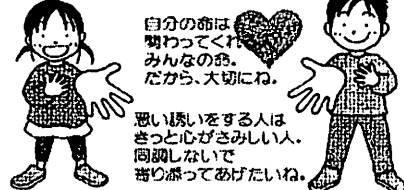 自分の命は
関わってくれ
みんなの命。
だから、大切にね。
悪い誘いをする人は
きっと心がさみしい人。
同調しないで
寄り添ってあげたいね。